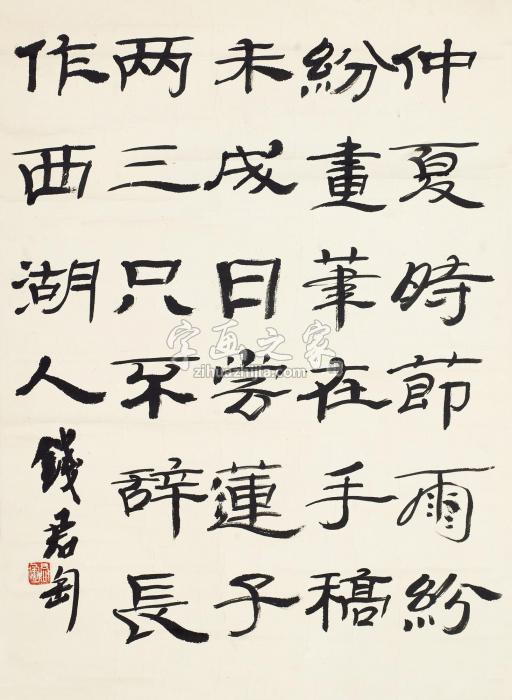 仲夏時節雨紛
紛畫筆在手稿
未成日尝蓮子
两三只不辞長
作西湖人
錢君匋
字画之家
zihuazhijia.com